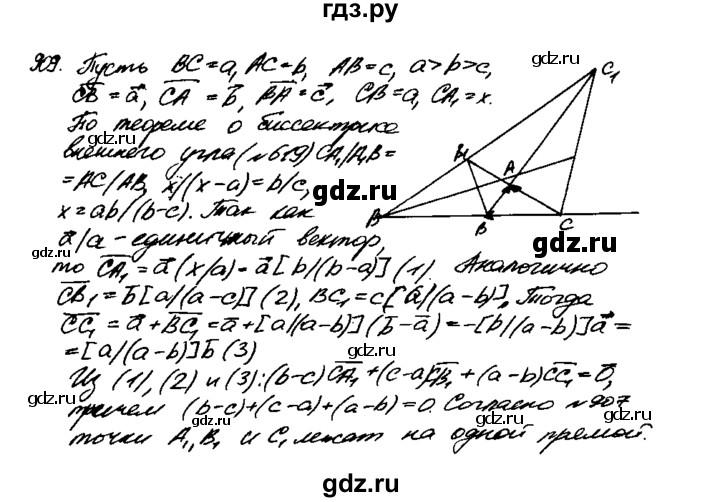 гдз.ру
909. Пусть BC=a, AC=b, AB=c, a>b>c,
C̅B̅=a⃗, C̅A̅=b⃗, B̅A̅=c⃗, CB=a, CA₁=x.
По теореме о биссектрисе
внешнего угла (№ 659) CA₁/A₁B=
=AC/AB, x/(x-a)=b/c,
x=ab/(b-c). Так как
a⃗/a-единичный вектор,
то C̅A̅₁=a⃗(x/a)=a⃗[b/(b-a)] (1). Аналогично
C̅B̅₁=b⃗[a/(a-c)] (2), BC₁=c[a/(a-b)], Тогда
C̅C̅₁=a⃗+B̅C̅₁=a⃗+[a/(a-b)](b⃗-a⃗)=-[b/(a-b)]a⃗=
=[a/(a-b)]b⃗ (3)
Из (1), (2) и (3): (b-c)C̅A̅₁+(c-a)C̅B̅₁+(a-b)C̅C̅₁=0⃗,
причем (b-c)+(c-a)+(a-b)=0. Согласно №907
точки A₁, B₁ и C₁ лежат на одной прямой.
C₁
B₁
A
B
B
C
gdz.ru
gdz.ru
gdz.ru
gdz.ru
gdz.ru
gdz.ru
gdz.ru
gdz.ru
gdz.ru
gdz.ru
gdz.ru
gdz.ru
gdz.ru